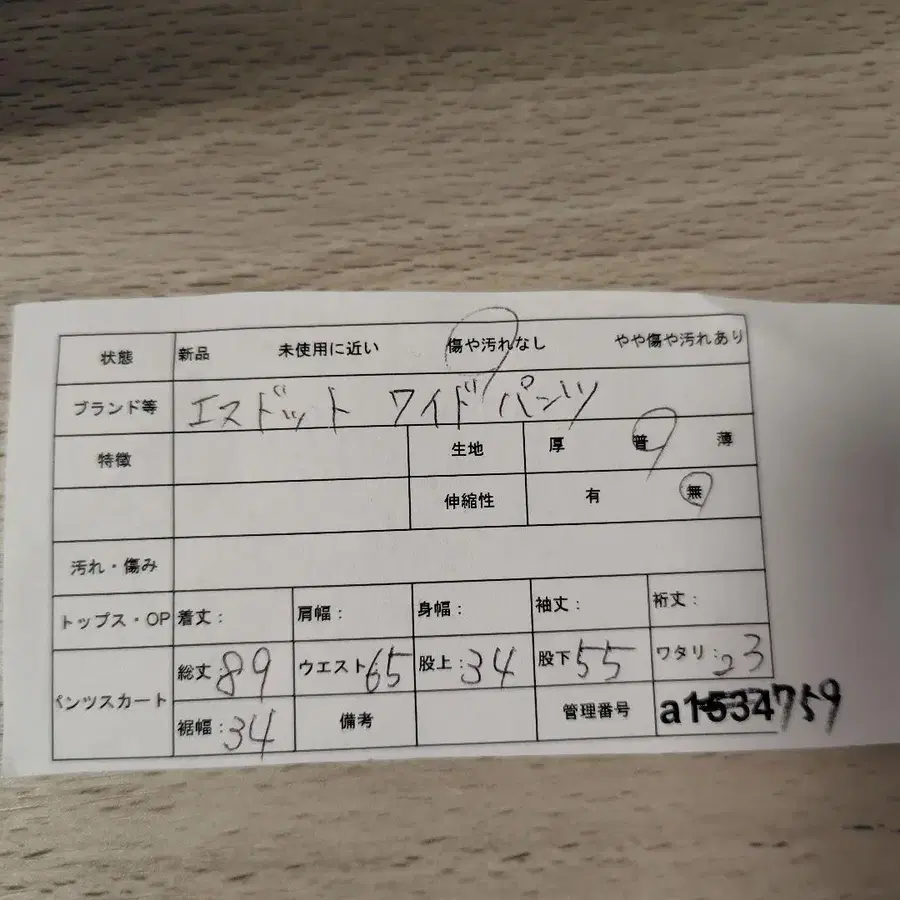 状態 新品 未使用に近い 傷や汚れなし やや傷や汚れあり
ブランド等 エスドット ワイドパンツ
特徴 生地 厚 普 薄
伸縮性 有 無
汚れ・傷み
トップス・OP 着丈: 肩幅: 身幅: 袖丈: 裄丈:
パンツスカート 総丈:89 ウエスト65 股上:34 股下55 ワタリ:23
裾幅:34 備考 管理番号